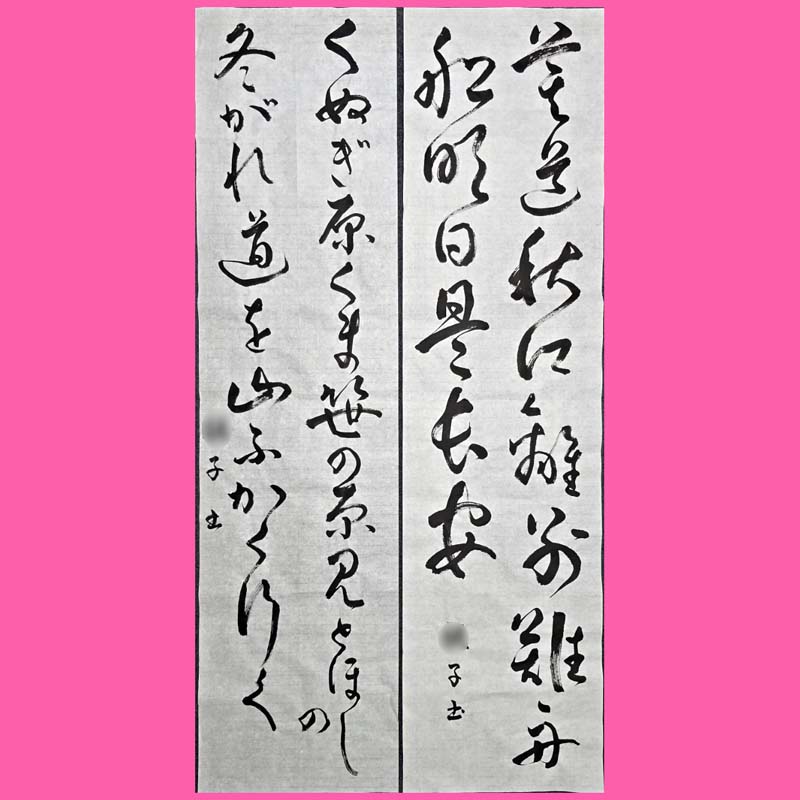 莫道秋江離別難舟
船明日是長安
子書
くぬぎ原くま笹の原見とほしの
冬がれ道を山ふかく行く
子書